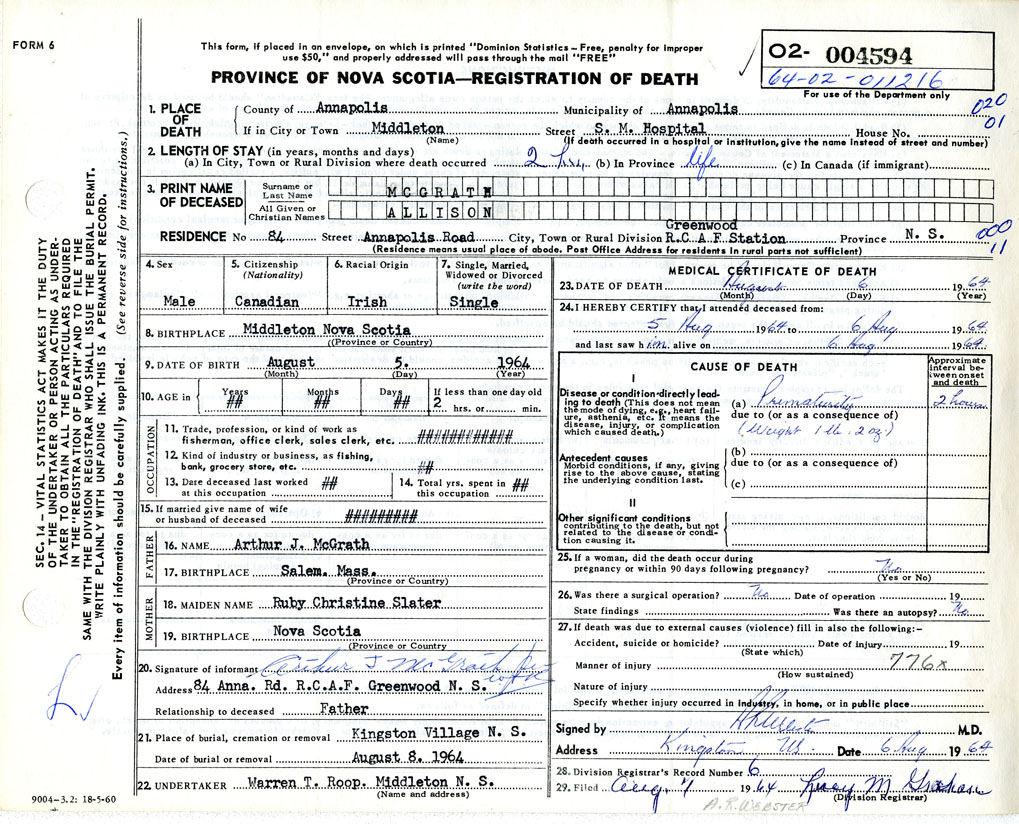 FORM 6
This form, if placed in an envelope, on which is printed "Dominion Statistics – Free, penalty for improper
use $50," and properly addressed will pass through the mail "FREE"
PROVINCE OF NOVA SCOTIA—REGISTRATION OF DEATH
02- 004594
64-02-011216
For use of the Department only
020
01
1. PLACE OF DEATH
County of Annapolis Municipality of Annapolis
If in City or Town Middleton Street S. M. Hospital House No.
(Name) (If death occurred in a hospital or institution, give the name instead of street and number)
2. LENGTH OF STAY (in years, months and days)
(a) In City, Town or Rural Division where death occurred 2 hrs. (b) In Province life (c) In Canada (if immigrant)
3. PRINT NAME OF DECEASED
Surname or Last Name MCGRATH
All Given or Christian Names ALLISON
Greenwood
RESIDENCE No 84 Street Annapolis Road City, Town or Rural Division R.C.A.F Station Province N. S.
(Residence means usual place of abode. Post Office Address for residents in rural parts not sufficient)
000
11
4. Sex
Male
5. Citizenship
(Nationality)
Canadian
6. Racial Origin
Irish
7. Single, Married,
Widowed or Divorced
(write the word)
Single
8. BIRTHPLACE Middleton Nova Scotia
(Province or Country)
9. DATE OF BIRTH August 5. 1964
(Month) (Day) (Year)
10. AGE in Years ## Months ## Days ## If less than one day old
2 hrs. or min.
OCCUPATION
11. Trade, profession, or kind of work as
fisherman, office clerk, sales clerk, etc. ############
12. Kind of industry or business, as fishing,
bank, grocery store, etc. ##
13. Date deceased last worked
at this occupation ##
14. Total yrs. spent in
this occupation ##
15. If married give name of wife
or husband of deceased #########
FATHER
16. NAME Arthur J. McGrath
17. BIRTHPLACE Salem. Mass.
(Province or Country)
MOTHER
18. MAIDEN NAME Ruby Christine Slater
19. BIRTHPLACE Nova Scotia
(Province or Country)
20. Signature of informant Arthur J McGrath
Address 84 Anna. Rd. R.C.A.F. Greenwood N. S.
Relationship to deceased Father
21. Place of burial, cremation or removal Kingston Village N. S.
Date of burial or removal August 8. 1964
22. UNDERTAKER Warren T. Roop. Middleton N. S.
(Name and address)
MEDICAL CERTIFICATE OF DEATH
23. DATE OF DEATH August 6 1964
(Month) (Day) (Year)
24. I HEREBY CERTIFY that I attended deceased from:
5 Aug 1964 to 6 Aug 1964
and last saw him alive on 6 Aug 1964
CAUSE OF DEATH
Approximate
interval be-
tween onset
and death
I
Disease or condition directly lead-
ing to death (This does not mean
the mode of dying, e.g., heart fail-
ure, asthenia, etc. It means the
disease, injury, or complication
which caused death.)
(a) Prematurity 2 hours
due to (or as a consequence of)
(Weight 1 lb. 2 oz.)
Antecedent causes
Morbid conditions, if any, giving
rise to the above cause, stating
the underlying condition last.
(b)
due to (or as a consequence of)
(c)
II
Other significant conditions
contributing to the death, but not
related to the disease or condi-
tion causing it.
25. If a woman, did the death occur during
pregnancy or within 90 days following pregnancy? No
(Yes or No)
26. Was there a surgical operation? No Date of operation 19
State findings Was there an autopsy? No
27. If death was due to external causes (violence) fill in also the following:–
Accident, suicide or homicide? Date of injury 19
(State which)
776x
Manner of injury
(How sustained)
Nature of injury
Specify whether injury occurred in industry, in home, or in public place
Signed by M.D.
Address Kingston NS. Date 6 Aug 1964
28. Division Registrar's Record Number 6
29. Filed Aug. 7 1964 M Graham
(Division Registrar)
A.R. WEBSTER
9004–3.2: 18-5-60
SEC. 14 – VITAL STATISTICS ACT MAKES IT THE DUTY
OF THE UNDERTAKER OR PERSON ACTING AS UNDER-
TAKER TO OBTAIN ALL THE PARTICULARS REQUIRED
IN THE "REGISTRATION OF DEATH" AND TO FILE THE
SAME WITH THE DIVISION REGISTRAR WHO SHALL ISSUE THE BURIAL PERMIT.
WRITE PLAINLY WITH UNFADING INK. THIS IS A PERMANENT RECORD.
Every item of information should be carefully supplied. (See reverse side for instructions.)